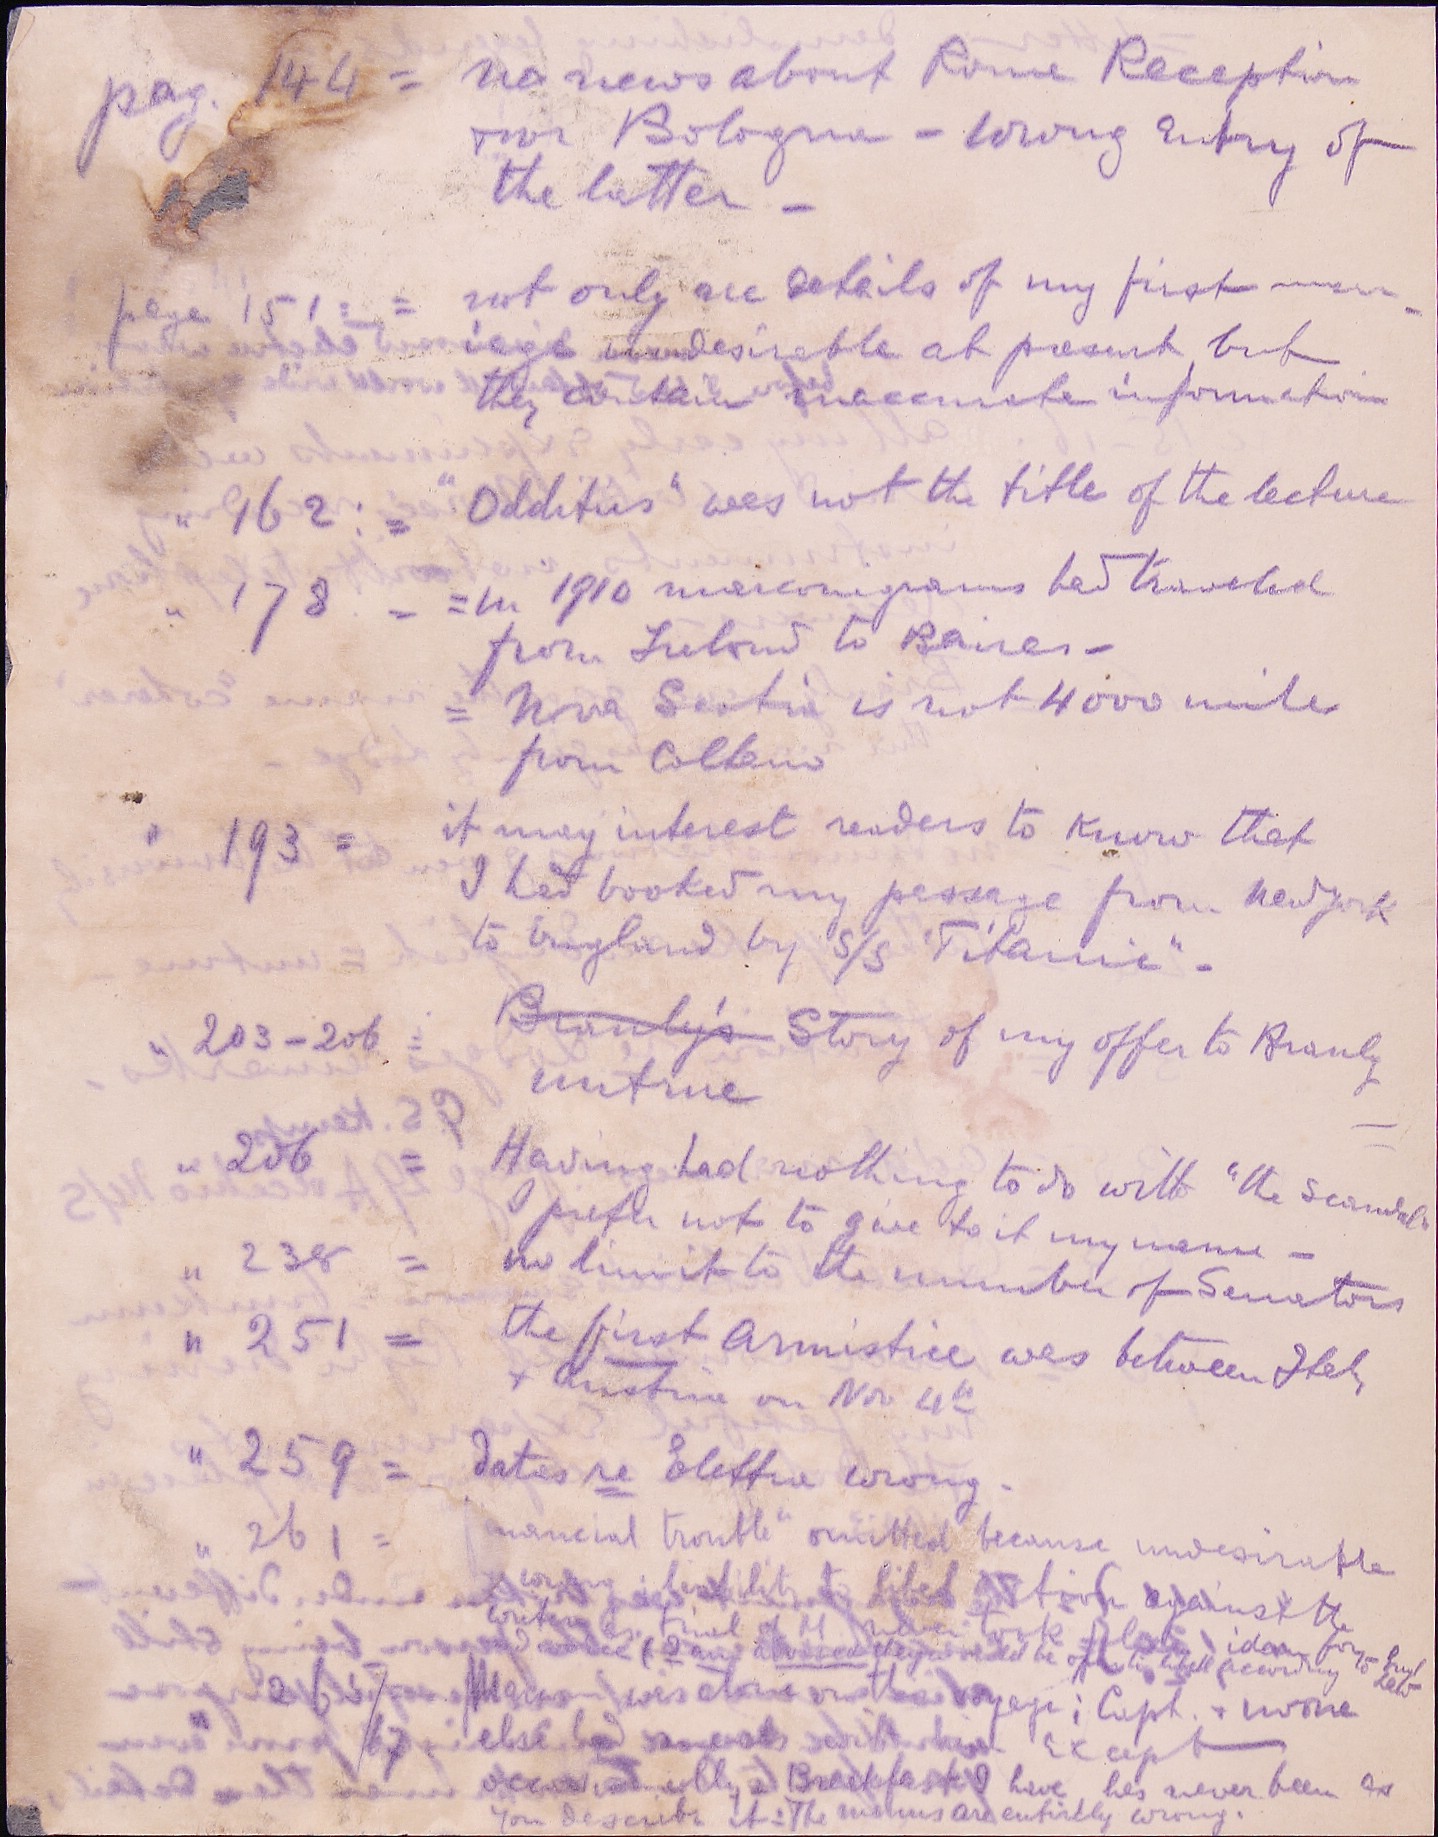 pag. 144 = no news about Rome Reception
nor Bologna - wrong entry of
the latter -
page 151 : = not only are details of my first marr-
iage undesirable at present, but
they contain inaccurate information
" 162 : = "Oddities" was not the title of the lecture
" 178 - = in 1910 marconigrams had traveled
from Ireland to BAires -
= Nova Scotia is not 4000 miles
from Coltano
" 193 = it may interest readers to know that
I had booked my passage from New York
to England by S/S "Titanic" -
" 203-206 = Branly's Story of my offer to Branly
untrue
" 206 = Having had nothing to do with "the scandal"
I prefer not to give to it my name -
" 238 = no limit to the number of Senators
" 251 = the first armistice was between Italy
+ Austria on Nov 4th
" 259 = dates re Elettra wrong.
" 261 = nancial trouble" omitted because undesirable
wrong, liability to libel action against the
writer as trial of M never took place, idem for
would be open to libel according to Engl Law
" 265/67 was alone on the voyage; Capt. + no one
else had meals with him except
occasionally Breakfast. I have has never been as
you describe it = The menus are entirely wrong.